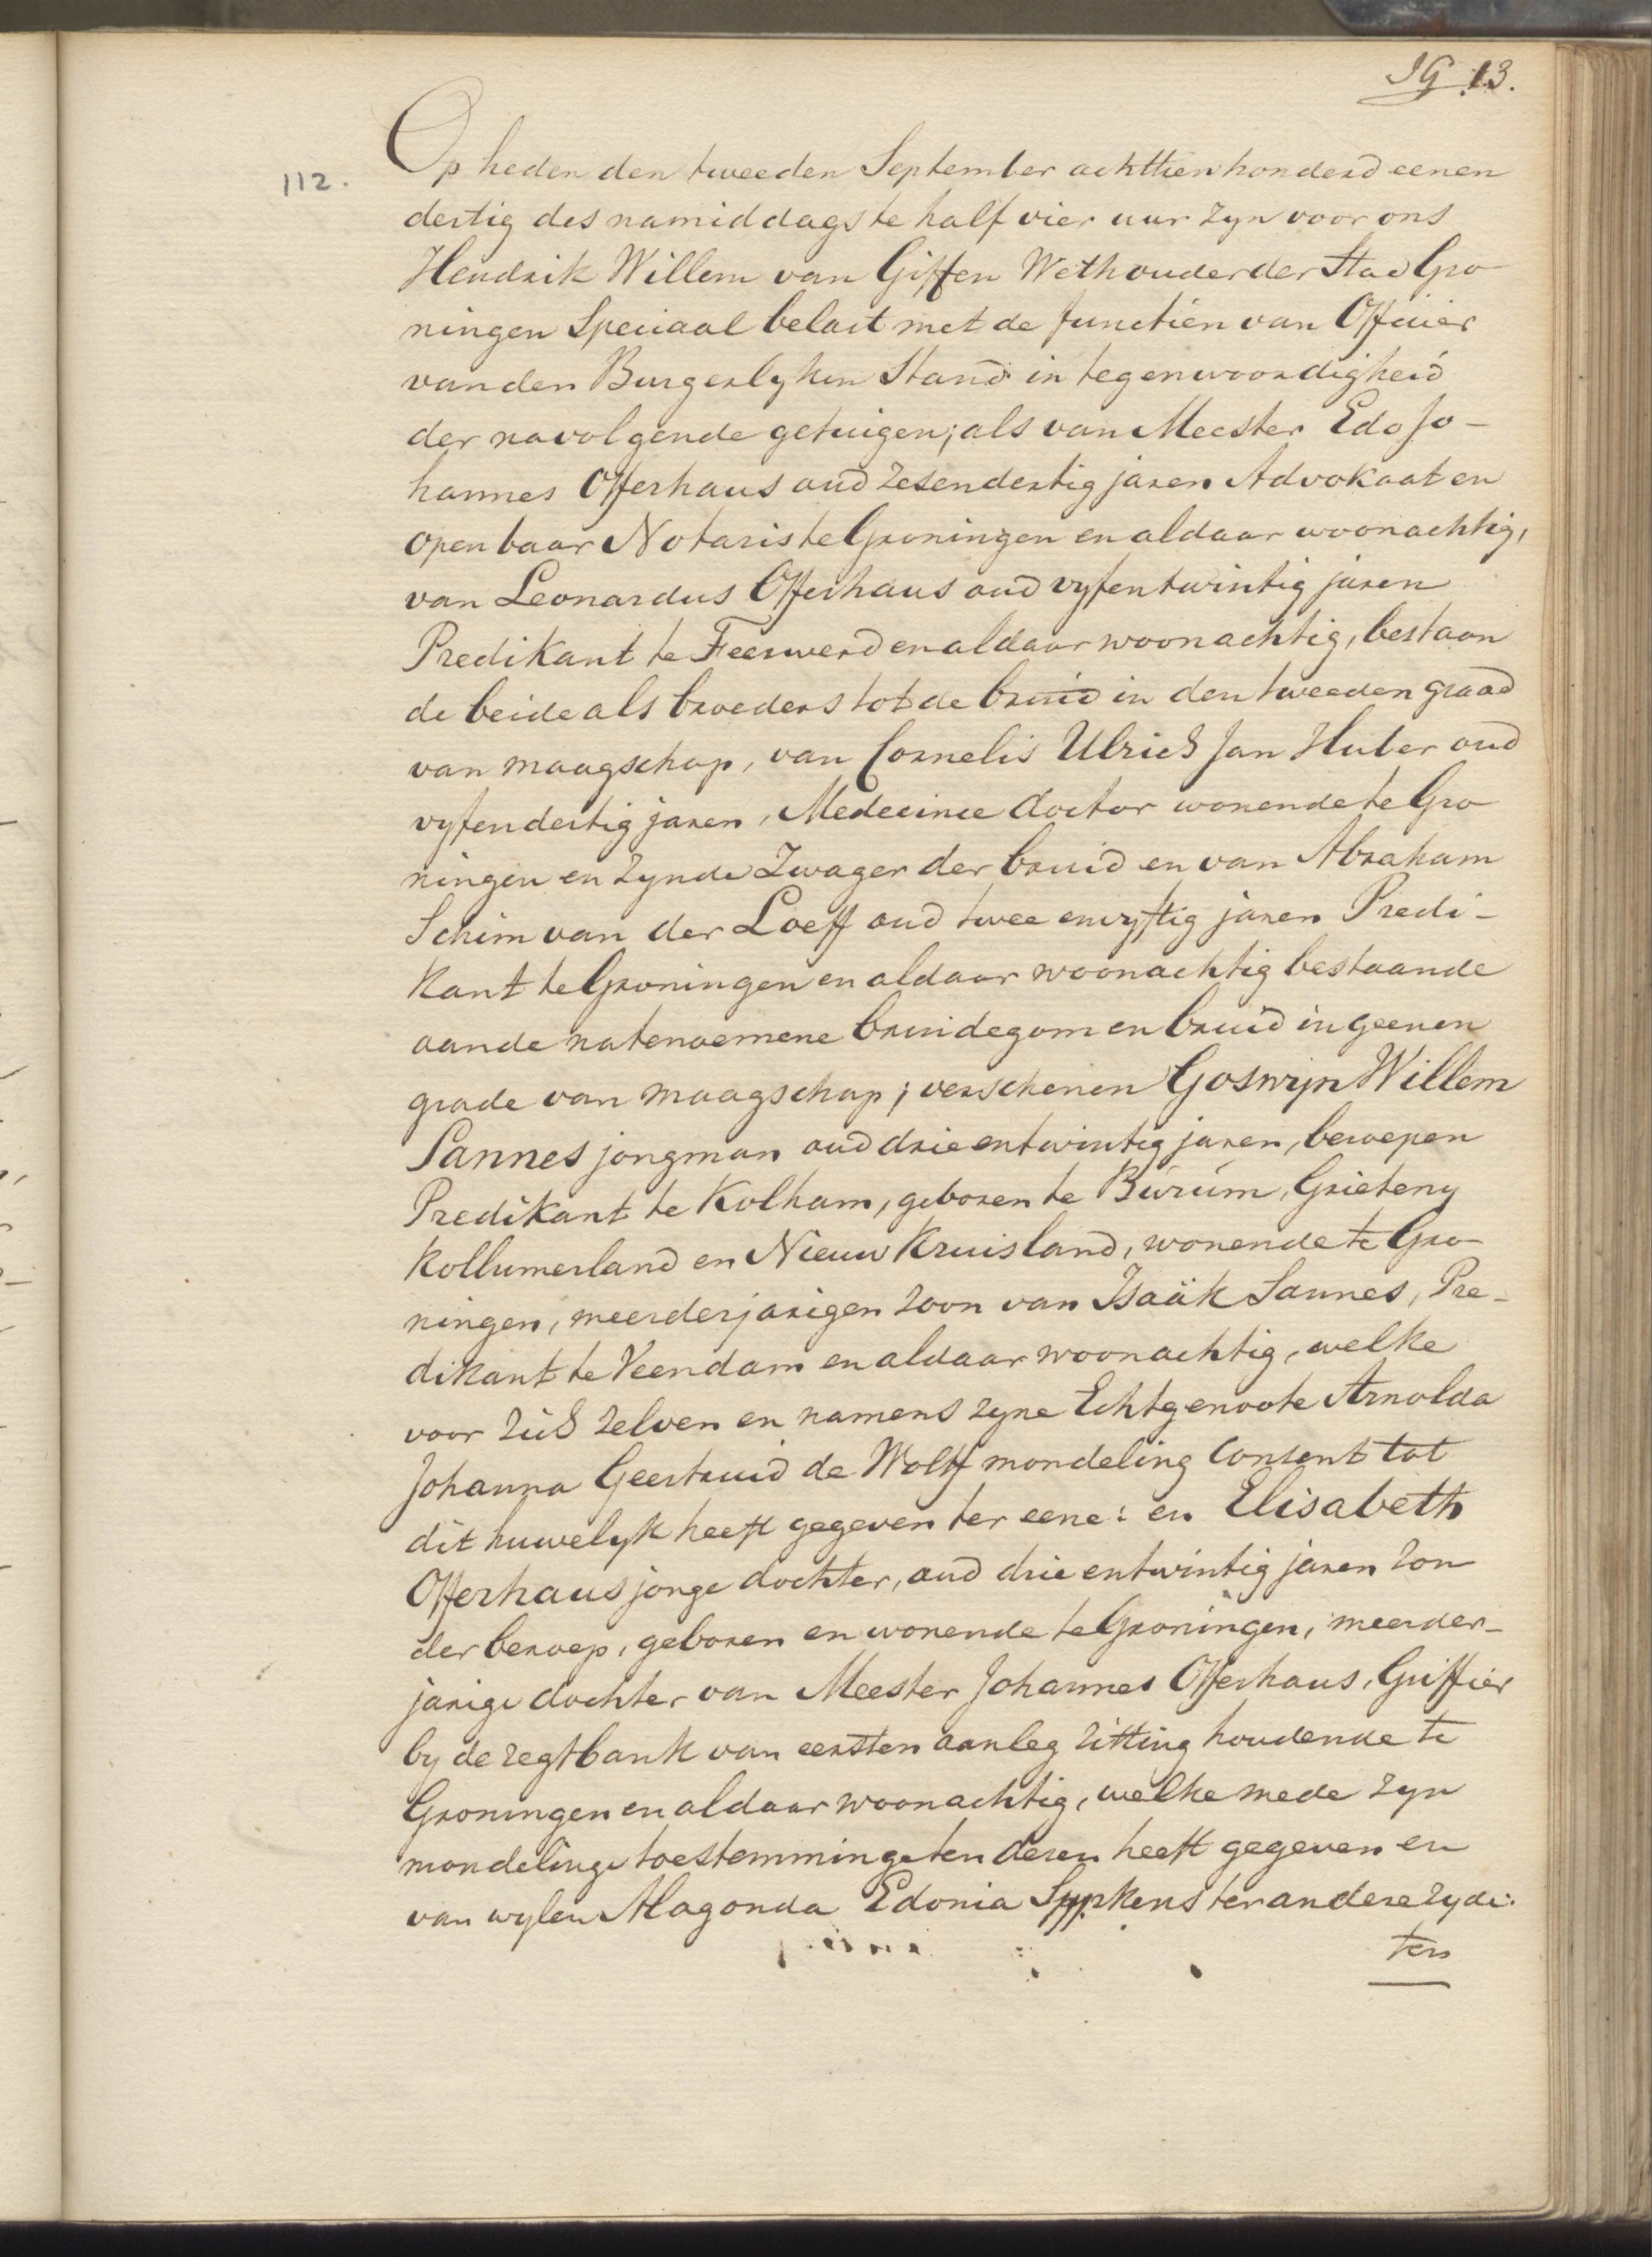 JG 13.
112.
Op heden den tweeden September achttien honderd eenen
dertig des namiddags te half vier uur zyn voor ons
Hendrik Willem van Giffen Wethouder der Stad Gro
ningen Speciaal belast met de functien van Officier
van den Burgerlyken Stand in tegenwoordigheid
der navolgende getuigen; als van Meester Edo Jo-
hannes Offerhaus oud zesendertig jaren Advokaat en
openbaar Notaris te Groningen en aldaar woonachtig,
van Leonardus Offerhaus oud vyfentwintig jaren
Predikant te Feerwerd en aldaar woonachtig, bestaan
de beide als broeders tot de bruid in den tweeden graad
van maagschap, van Cornelis Ulrich Jan Huber oud
vyfendertig jaren, Medecinae doctor wonende te Gro
ningen en zynde Zwager der bruid en van Abraham
Schim van der Loeff oud twee envyftig jaren Predi-
kant te Groningen en aldaar woonachtig bestaande
aan de natenoemene bruidegom en bruid in geenen
grade van maagschap; verschenen Goswyn Willem
Sannes jongman oud drieentwintig jaren, beroepen
Predikant te Kolham, geboren te Burum, Grieteny
Kollumerland en Nieuw Kruisland, wonende te Gro-
ningen, meerderjarigen zoon van Isaäk Sannes, Pre-
dikant te Veendam en aldaar woonachtig, welke
voor zich zelven en namens zyne Echtgenoote Arnolda
Johanna Geertruid de Wolff mondeling Consent tot
dit huwelyk heeft gegeven ter eene: en Elisabeth
Offerhaus jonge dochter, oud drie entwintig jaren zon
der beroep, geboren en wonende te Groningen, meerder-
jarige dochter van Meester Johannes Offerhaus, Griffier
by de regtbank van eersten aanleg zitting houdende te
Groningen en aldaar woonachtig, welke mede zyn
mondelinge toestemming ten dezen heeft gegeven en
van wylen Alagonda Edonia Sypkens ter andere zyde:
ten